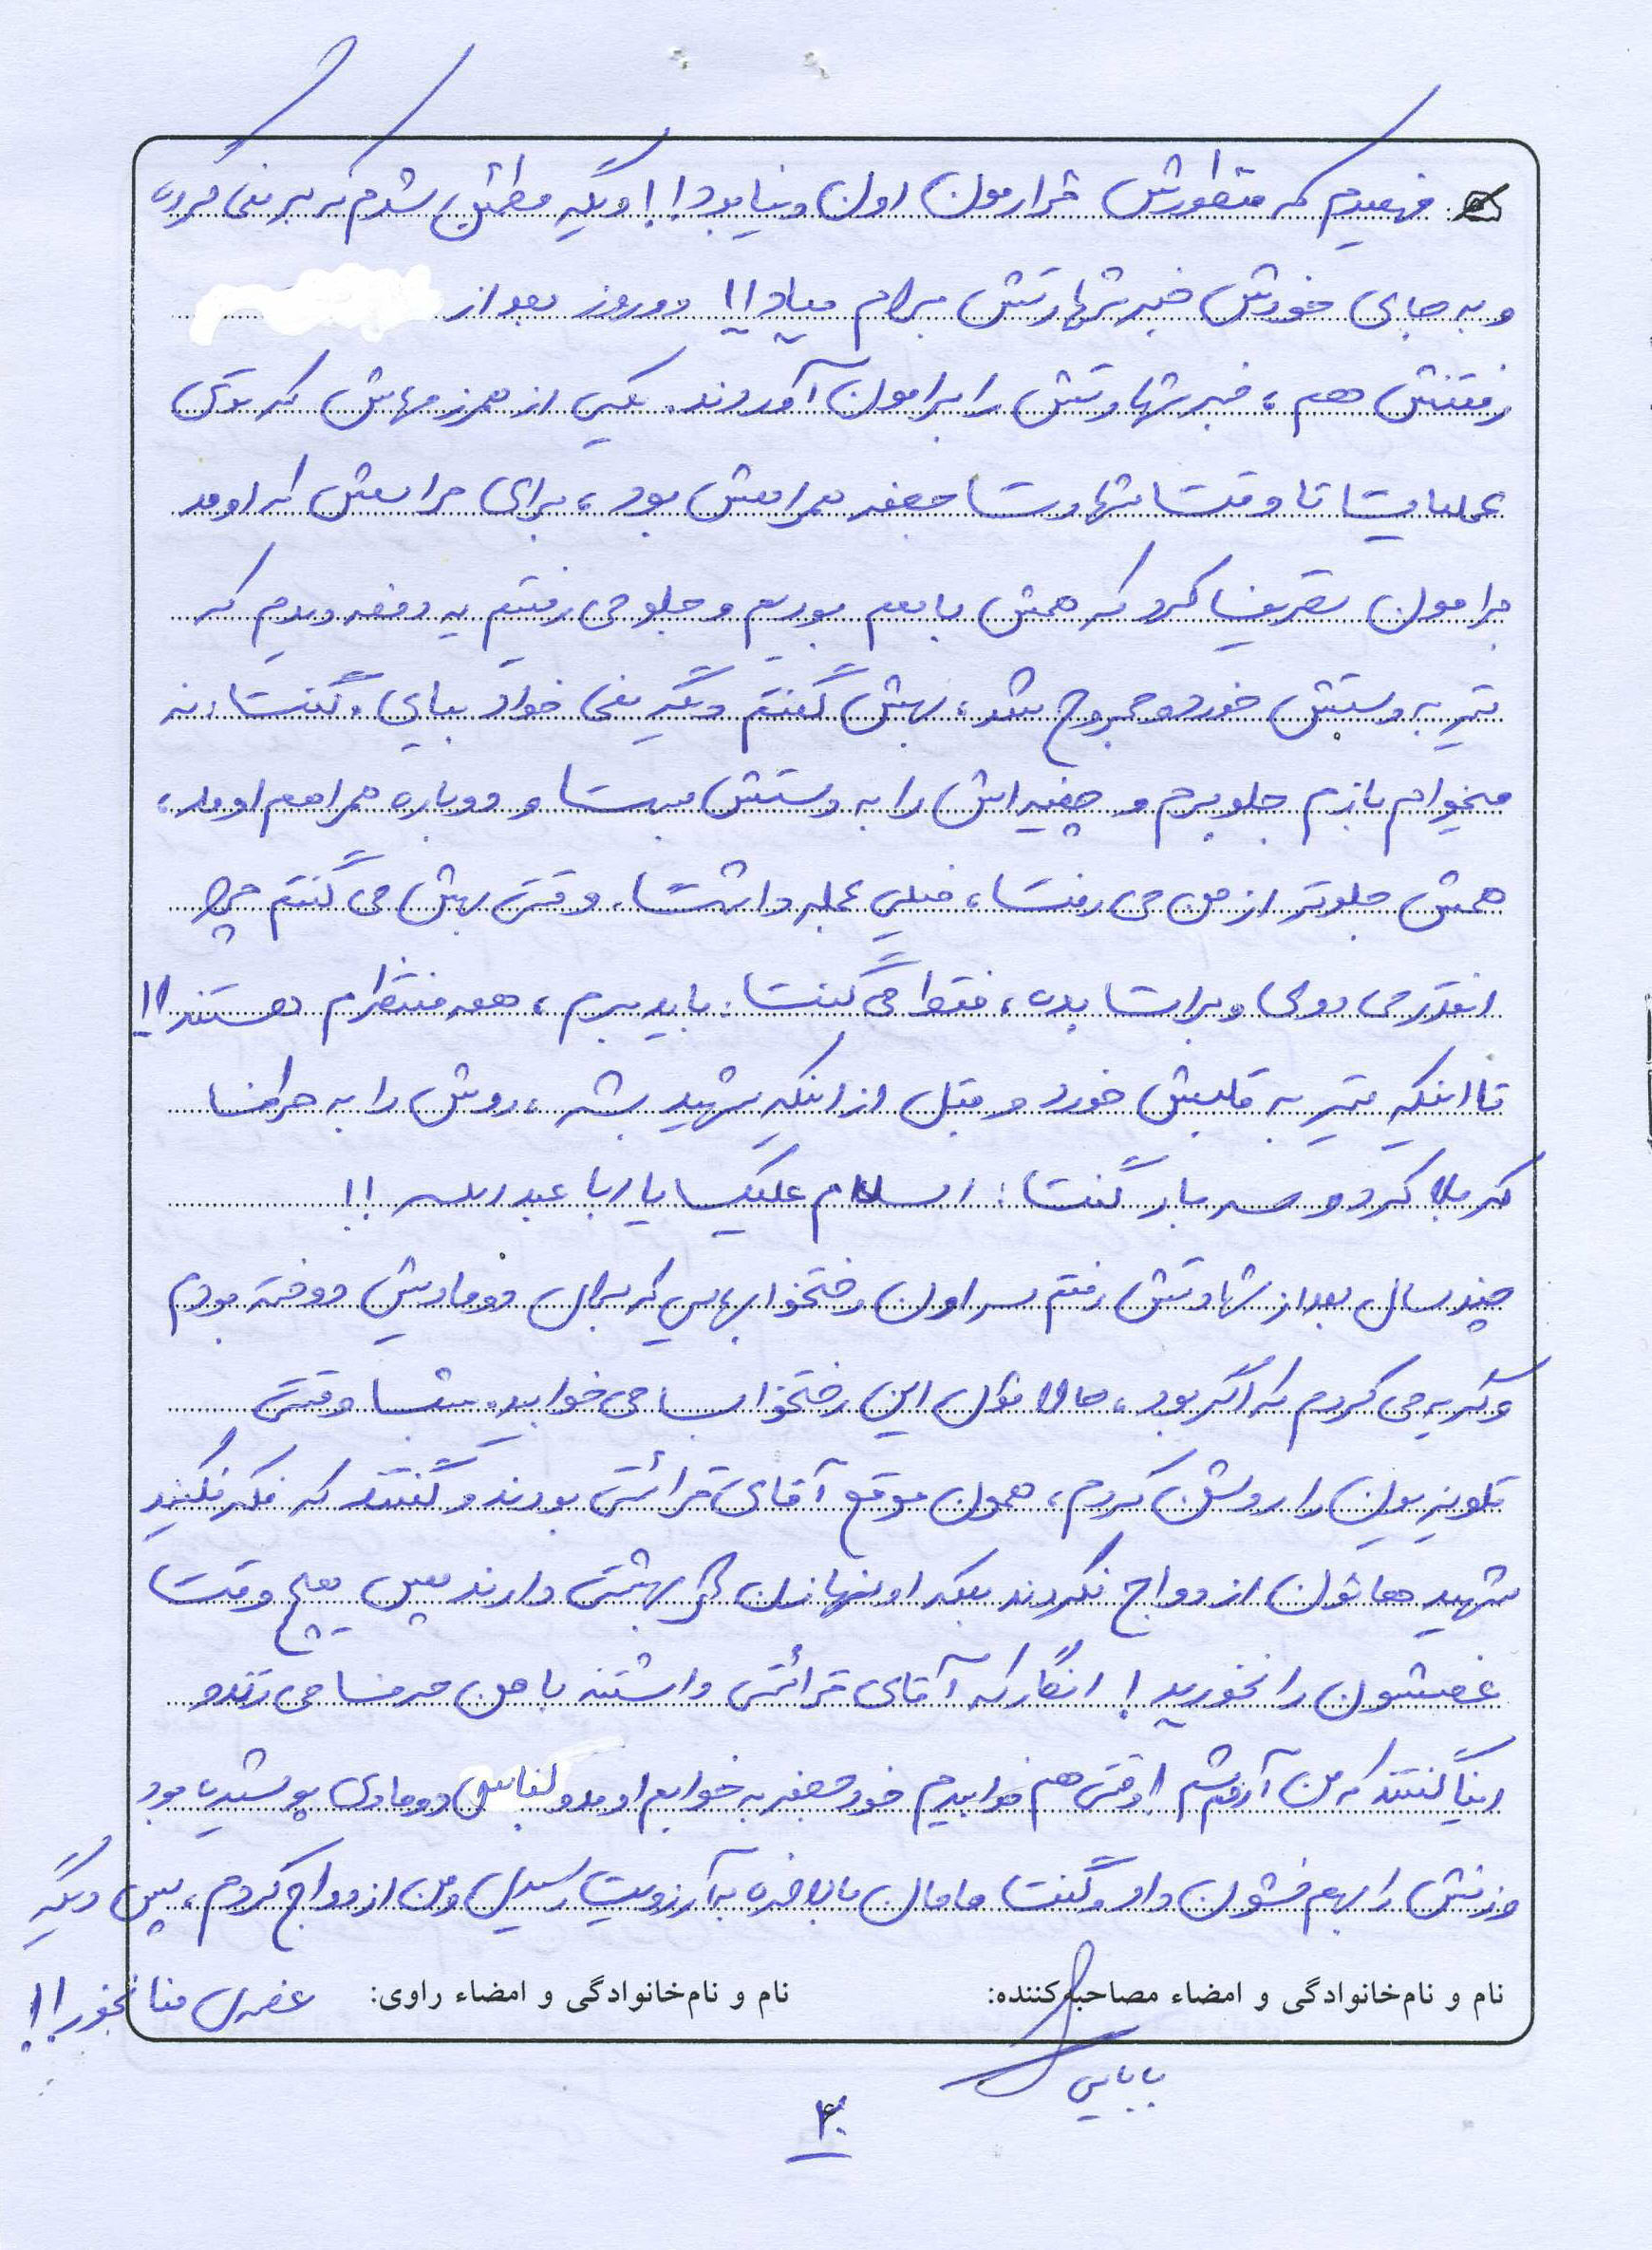 فهمیدم که منظورش قرارمون اون دنیا بود!! دیگه مطمئن شدم که برنمی‌گرده
و به جای خودش خبر شهادتش برام میاد!! دو روز بعد از
رفتنش هم، خبر شهادتش را برامون آوردند. یکی از همرزمهاش که توی
عملیات تا وقت شهادت جعفر همراهش بود، برای مراسمش که اومد
برامون تعریف کرد که همش با هم بودیم و جلو می رفتیم یه دفعه دیدم که
تیر به دستش خورد و مجروح شد، بهش گفتم دیگه نمی خواد بیای. گفت: نه
میخوام بازم جلو برم و چفیه‌اش را به دستش بست و دوباره همراهم اومد،
همش جلوتر از من می رفت، خیلی عجله داشت. وقتی بهش می گفتم چرا
انقدر می دوی و برات بده، فقط می گفت: باید برم، همه منتظرم هستند!!
تا اینکه تیر به قلبش خورد و قبل از اینکه شهید بشه، روش را به طرف
کربلا کرد و سه بار گفت: السلام علیک یا ابا عبدالله!!
چند سال بعد از شهادتش رفتم سراون رختخوابهایی که برای دومادیش دوخته بودم
و گریه می کردم که اگر بود، حالا توی این رختخواب می خوابید. شب وقتی
تلویزیون را روشن کردم، همون موقع آقای قرائتی بودند و گفتند که فکر نکنید
شهید هاتون ازدواج نکردند بلکه اونها زن های بهشتی دارند پس هیچ وقت
غصشون را نخورید! انگار که آقای قرائتی داشتند با من حرف می زدند و
اینا گفتند که من آروم شم! وقتی هم خوابیدم خود جعفر به خوابم اومد و لباس دومادی پوشیده بود
و زنش را بهم نشون داد و گفت مامان بالاخره به آرزویت رسیدی و من ازدواج کردم، پس دیگه
غصه‌ی منا نخور!!
نام و نام‌خانوادگی و امضاء مصاحبه‌کننده: نام و نام‌خانوادگی و امضاء راوی:
بابایی
۴